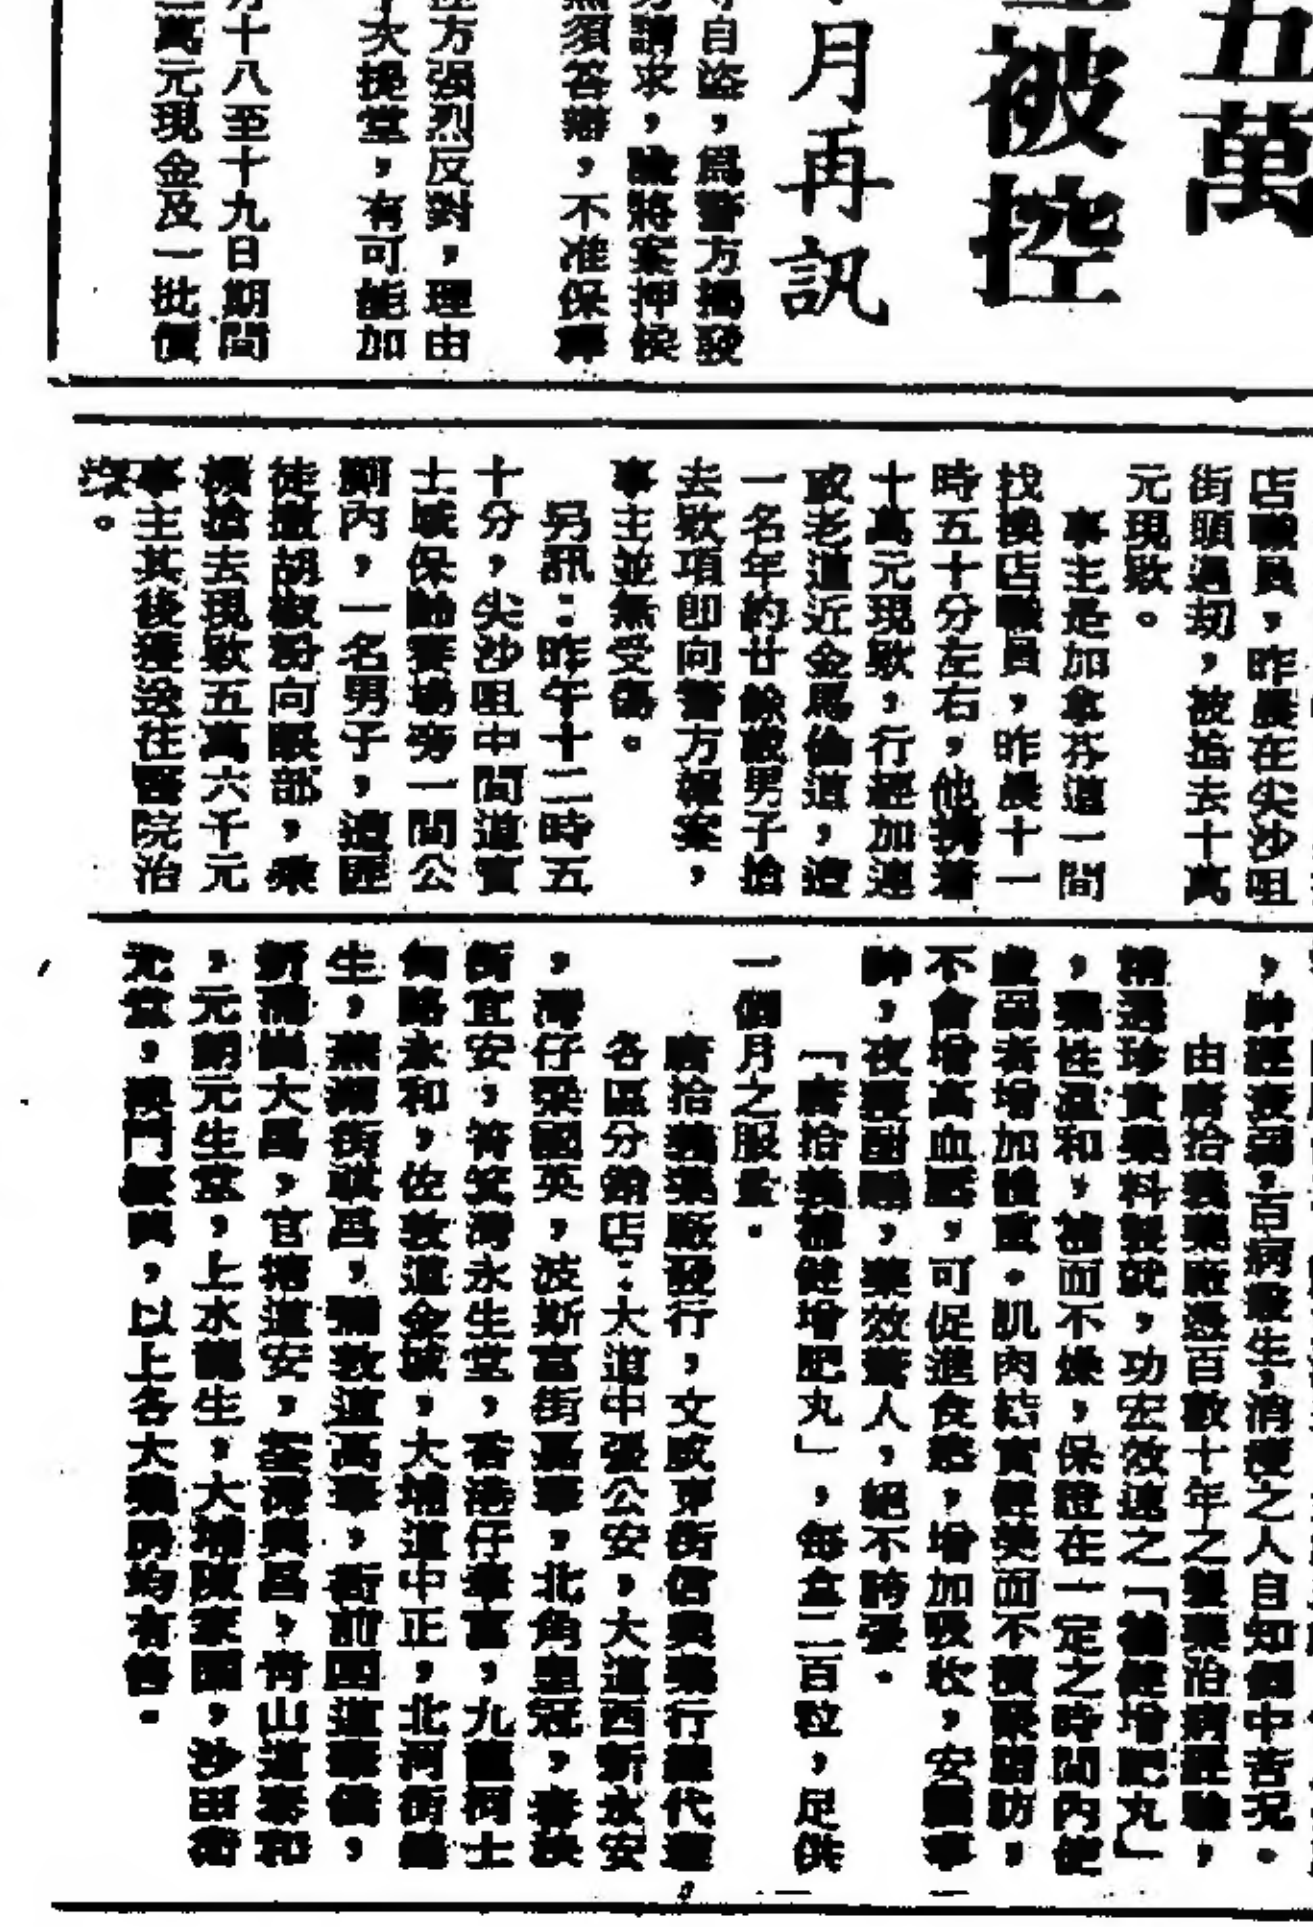 五萬
被控
月再訊
自盜，爲警方揭發
請求，諭將案押候
須答辯，不准保釋
方强烈反對，理由
次提堂，有可能加
十八至十九日期間
萬元現金及一批價
店職員，昨晨在尖沙咀
街頭遇刧，被搶去十萬
元現欵。
事主是加拿芬道一間
找換店職員，昨晨十一
時五十分左右，他携着
十萬元現欵，行經加連
威老道近金馬倫道，遭
一名年約廿餘歲男子搶
去欵項卽向警方報案，
事主並無受傷。
另訊：昨午十二時五
十分，尖沙咀中間道寶
士域保齡賽場旁一間公
厠內，一名男子，遭匪
徒撒胡椒粉向眼部，乘
機搶去現欵五萬六千元
事主其後獲送往醫院治
。
，神經衰弱，百病叢生，消瘦之人自知個中苦况。
由唐拾義藥廠憑百數十年之製藥治病經驗，
精選珍貴藥料製就，功宏效速之「補健增肥丸」
，藥性溫和，補而不燥，保證在一定之時間內使
瘦弱者增加體重。肌肉結實健美而不積聚脂肪，
不會增高血壓，可促進食慾，增加吸收，安腦寧
神，夜寢酣睡，藥效驚人，絕不誇張。
「唐拾義補健增肥丸」，每盒二百粒，足供
一個月之服量。
唐拾義藥廠發行，文咸東街信興藥行總代理
各區分銷店：大道中張公安，大道西新永安
，灣仔梁國英，波斯富街嘉華，北角皇冠，春秧
街宜安，筲箕灣永生堂，香港仔華富，九龍柯士
甸路永和，佐敦道金城，大埔道中正，北河街
生，蕪湖街祺昌，彌敦道萬華，衙前圍道華僑，
新蒲崗大昌，官塘道安，荃灣興昌，青山道泰和
，元朗元生堂，上水龍生，大埔陳家園，沙田衛
元堂，澳門，以上各大藥房均有售。